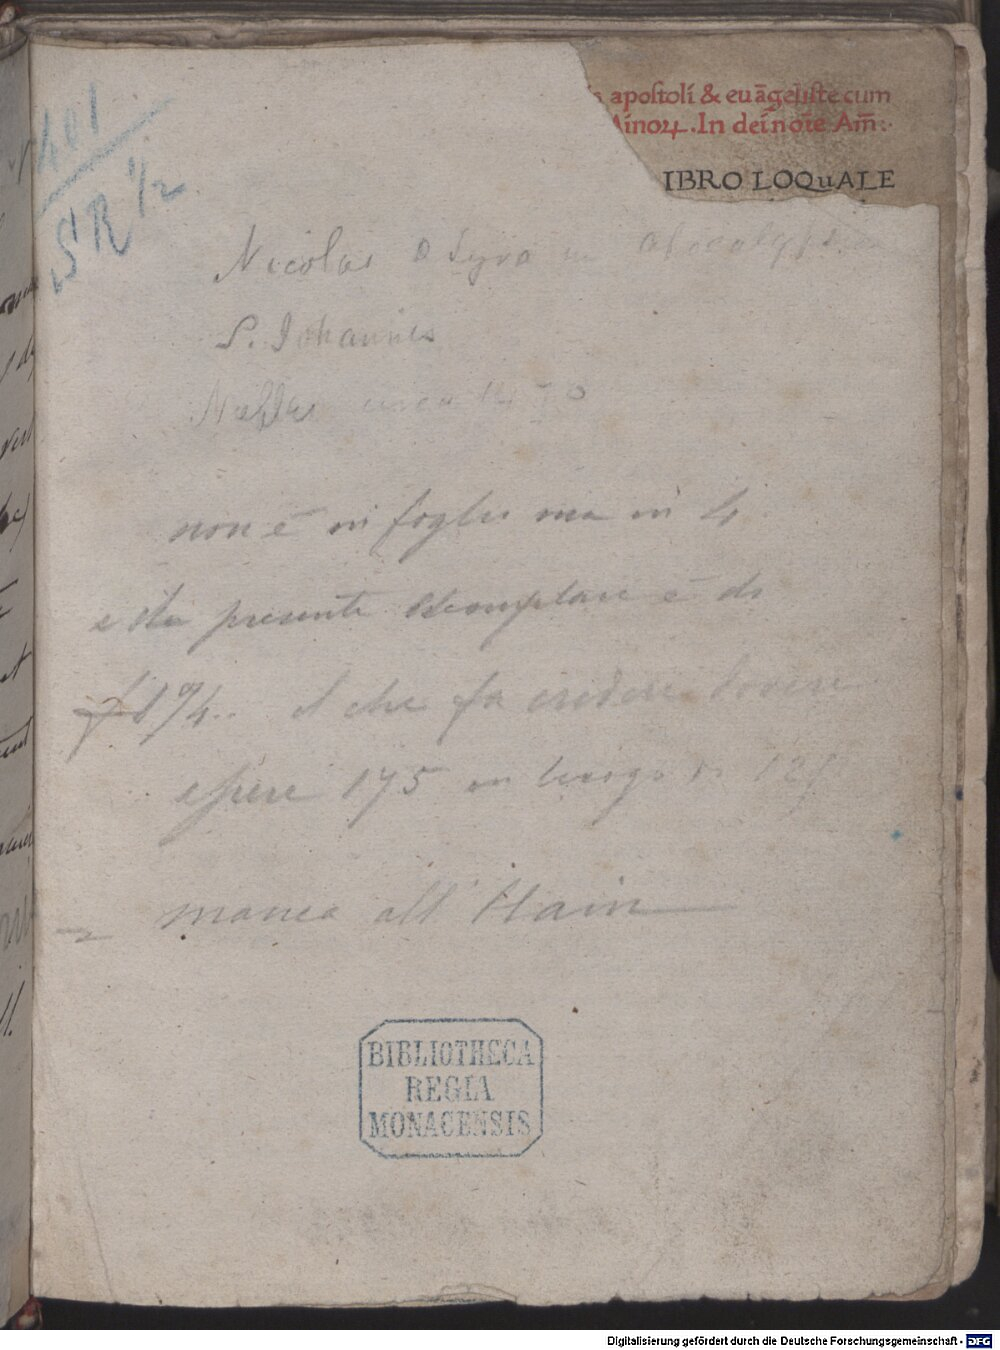 401
SR 1/2
apostoli & euāgeliste cum
Minoꝝ. In dei noīe Am̄:·
IBRO LOQuALE
Nicolas D Lyra in apocalyps.
S. Johannis
circa 1470
non è in foglio ma in 4
e sta presente esemplare è di
f 174.. il che fa credere dovere
essere 175 in luogo di 125
manca all' Hain
BIBLIOTHECA
REGIA
MONACENSIS
Digitalisierung gefördert durch die Deutsche Forschungsgemeinschaft - DFG